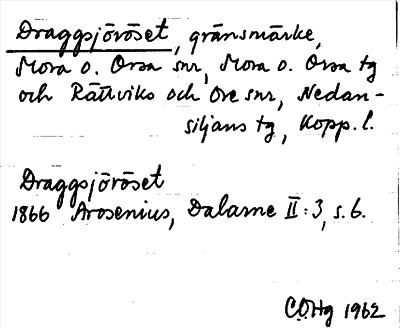 Draggsjöröset, gränsmärke,
Mora o. Orsa snr, Mora o. Orsa tg
och Rättviks och Ore snr, Nedan-
siljans tg, Kopp. l.
Draggsjöröset
1866 Arosenius, Dalarne II:3, s. 6.
COHg 1962